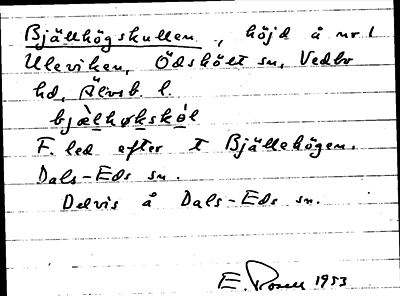 Bjällhögskullen, höjd å nr 1
Uleviken, Ödskölt sn, Vedbo
hd, Älvsb. l.
bjæ̀lhøkskø̀l
F. led efter t Bjällehögen.
Dals-Eds sn.
Delvis å Dals-Eds sn.
E. Rosell 1953